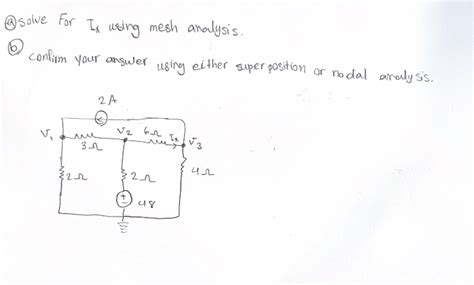 ⓐ Solve For Ix using mesh analysis.
ⓑ
confirm your answer using either superposition or nodal analysis.
2A
V1 V2 6Ω Ix V3
3Ω
2Ω 2Ω 4Ω
+ 48
-